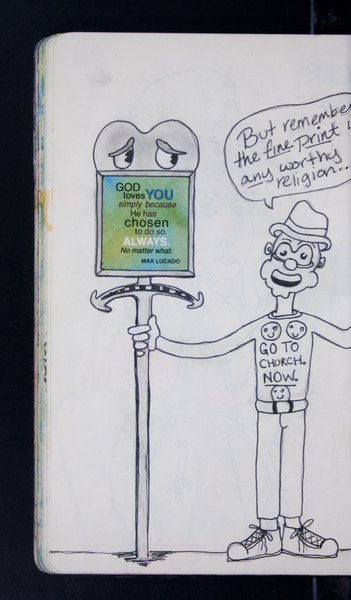 But remember
the fine print in
any worthy
religion...
GOD
loves YOU
simply because
He has
chosen
to do so.
ALWAYS.
No matter what.
MAX LUCADO
GO TO
CHURCH.
NOW.